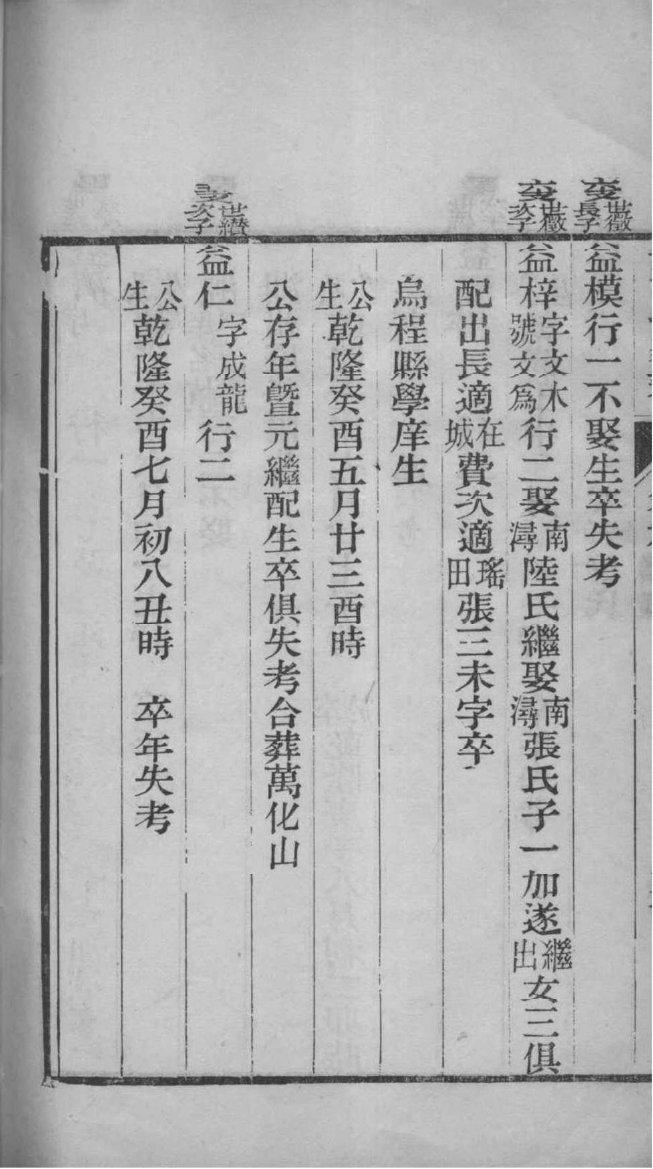 長子
益模行一不娶生卒失考
次子
益梓字文木號文爲行二娶南潯陸氏繼娶南潯張氏子一加遂繼出女三俱
配出長適在城費次適瑤田張三未字卒
烏程縣學庠生
公生乾隆癸酉五月廿三酉時
公存年暨元繼配生卒俱失考合葬萬化山
次子
益仁字成龍行二
公生乾隆癸酉七月初八丑時 卒年失考